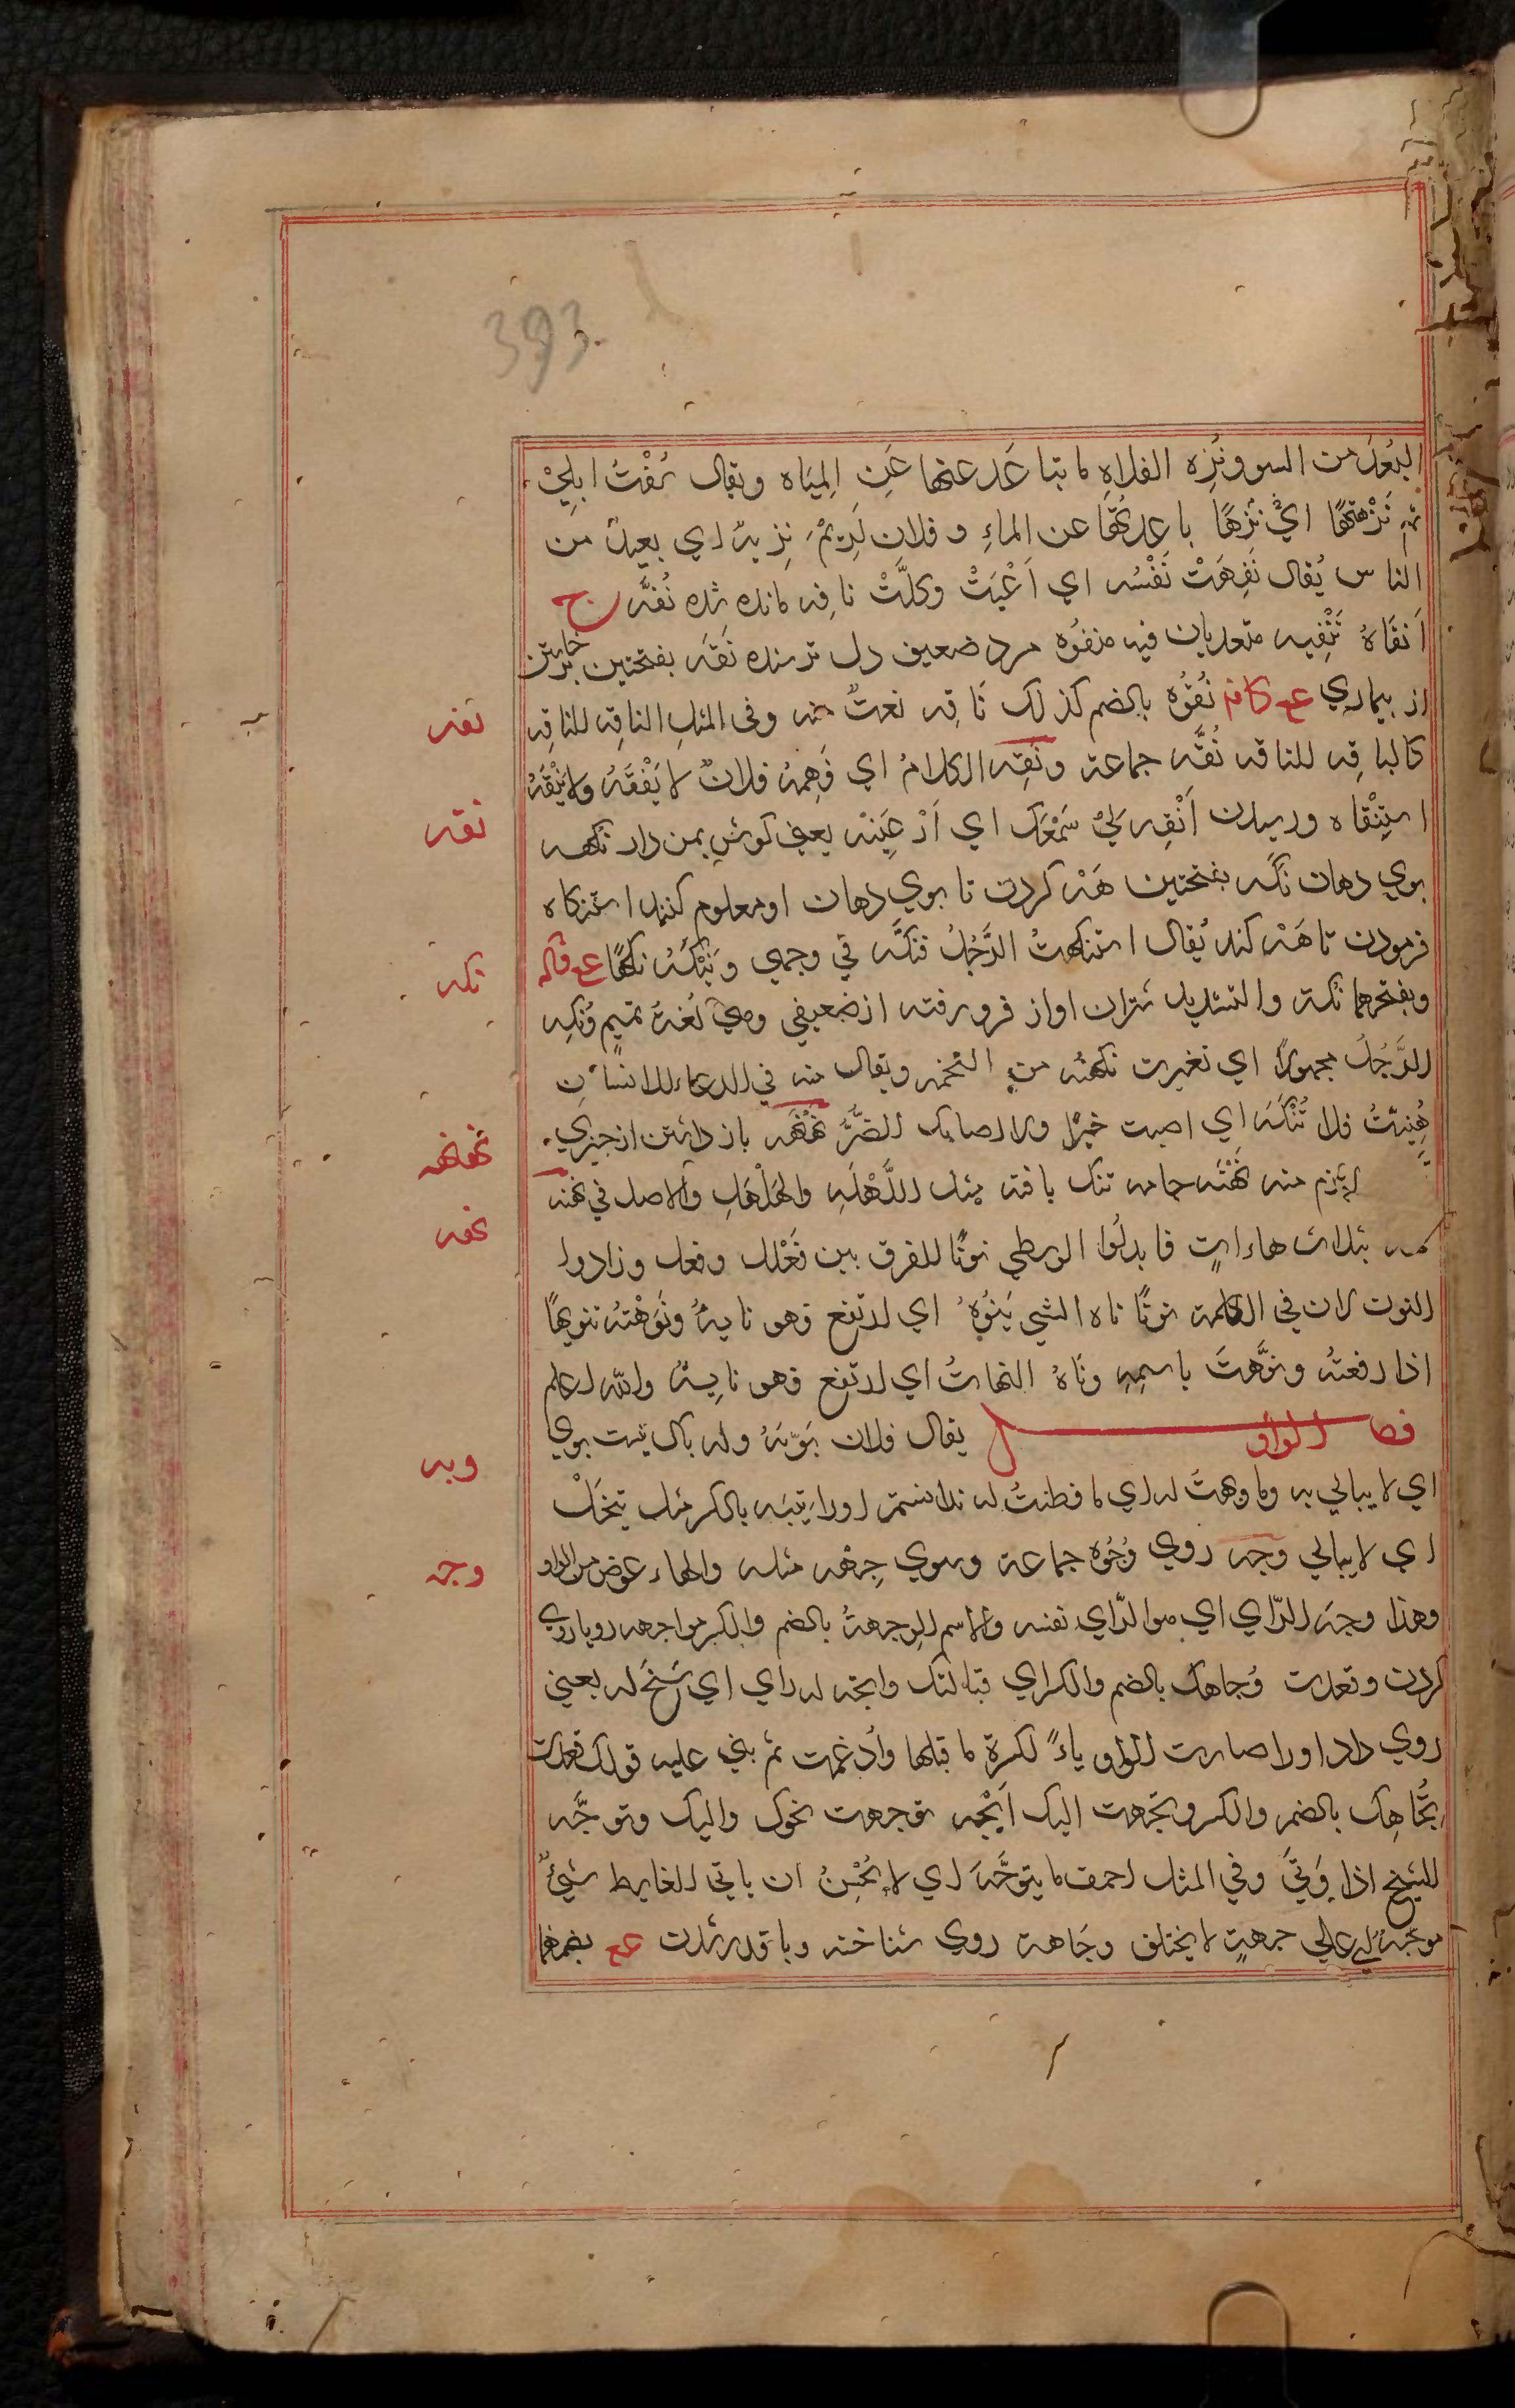 393
البُعد من السوء ونُزْه الفلاه ما تباعد عنها عَنِ المِيَاه ويقال سُقْتُ ابلي
ثم نَزَهتُها اي نَزْهًا باعدتُها عن الماءِ وفلان كريمٌ نزيهٌ اي بعيدٌ من
الناس يُقال نَفِهَتْ نَفْسُه اي اَعْيَتْ وكلَّتْ نافه مانده شده نُفَّه ج
اَنفَاهُ تَنْفِيه متعديان فيه منفُوه مرد ضعيف دل ترسنده نَقَه بفتحتين خاستن
از بيماري ع كافه نُقُوْه بالضم كذلك نَاقِه نعتٌ منه وفي المثل الناقه للناقِه
كالباقه للناقه نُقَّه جماعة ونَقِه الكلامُ اي فَهِمهُ فلانٌ لا يَفْقَهُ ولا يَنْقَهُ
استِنْقاه ورسيدن اَنْقِه لِيْ سَمْعَك اي اَرْعِنيه يعني كوش بمن دار نكهه
بوي دهان نَكَه بفتحتين هَهْ كردن تا بوي دهان او معلوم كنند استنكاه
فرمودن تا هَهْ كند يُقال استنكهتُ الرَّجُلُ فنكَّه في وجهي ويَنْكَهُ نكهًا ع ف
وبفتحهما نكه والتشديد شتران اواز فرو رفته از ضعيفي وهي لُغة تميم ونُكِه
الرَّجُلُ مجهولًا اي تغيرت نكهتُه من التخمه ويقال منه في الدعاء للانسان
هُنِيتُ فلا تُنْكَه اي اصبت خيرًا ولا اصابك الضُّرُّ نَهْنَهه باز داشتن از چيزي
لازم منه نَهْنَه جامه تنك بافته مثل اللَّهْلَهِ والهَلْهَلِ والاصل في نهنه
نهه بثلاث هاءات فابدلُوا الوسطي نونًا للفرق بين فَعْلل وفعل وزادوا
النون لان في الكلمة نونًا ناه الشي يَنُوْهُ اي ارتفع فهو نايهٌ ونَوَّهتُه تنويهًا
اذا رفعتُه ونوَّهتَ باسمِهِ ونَاهُ النهاتُ اي ارتفع فهو نايهٌ والله اعلم
فصل الواو يقال فلان يوبَهُ وله باك نيست بوي
اي لا يبالي به وما وبهتُ له اي ما فطنتُ له ندانستم اورا تيبَه بالكسر مثل تيخَل
اي لا يبالي وجه روي وُجُوْه جماعة وسوي جِهْه مثله والهاء عوض من الواو
وهذا وجه الرّاي اي هو الرّاي نفسه والاسم الوِجهةُ بالضم والكسر مواجهه روباروي
كردن وقعدت وُجاهك بالضم والكسر اي قبالتك واتجه له راي اي سَنَح له يعني
روي داد اورا صارت الواو ياءً لكسرة ما قبلها وأدغمت ثم بني عليه قولك قعدت
تُجاهِك بالضم والكسر وتجهت اليك اَتْجَه توجهت نحوك واليك وتوجَّه
للشيخ اذا وَلّي وفي المثل احمق ما يتوجَّه اي لا يُحْسِنُ ان ياتي الغايط شيْءٌ
موجَّهٌ اي علي جهةٍ لا يختلف وجَاهة روي شناخته وبا قدر شدن ع بضمهما
نفه
نقه
نكه
نهنهه
نهه
وبه
وجه